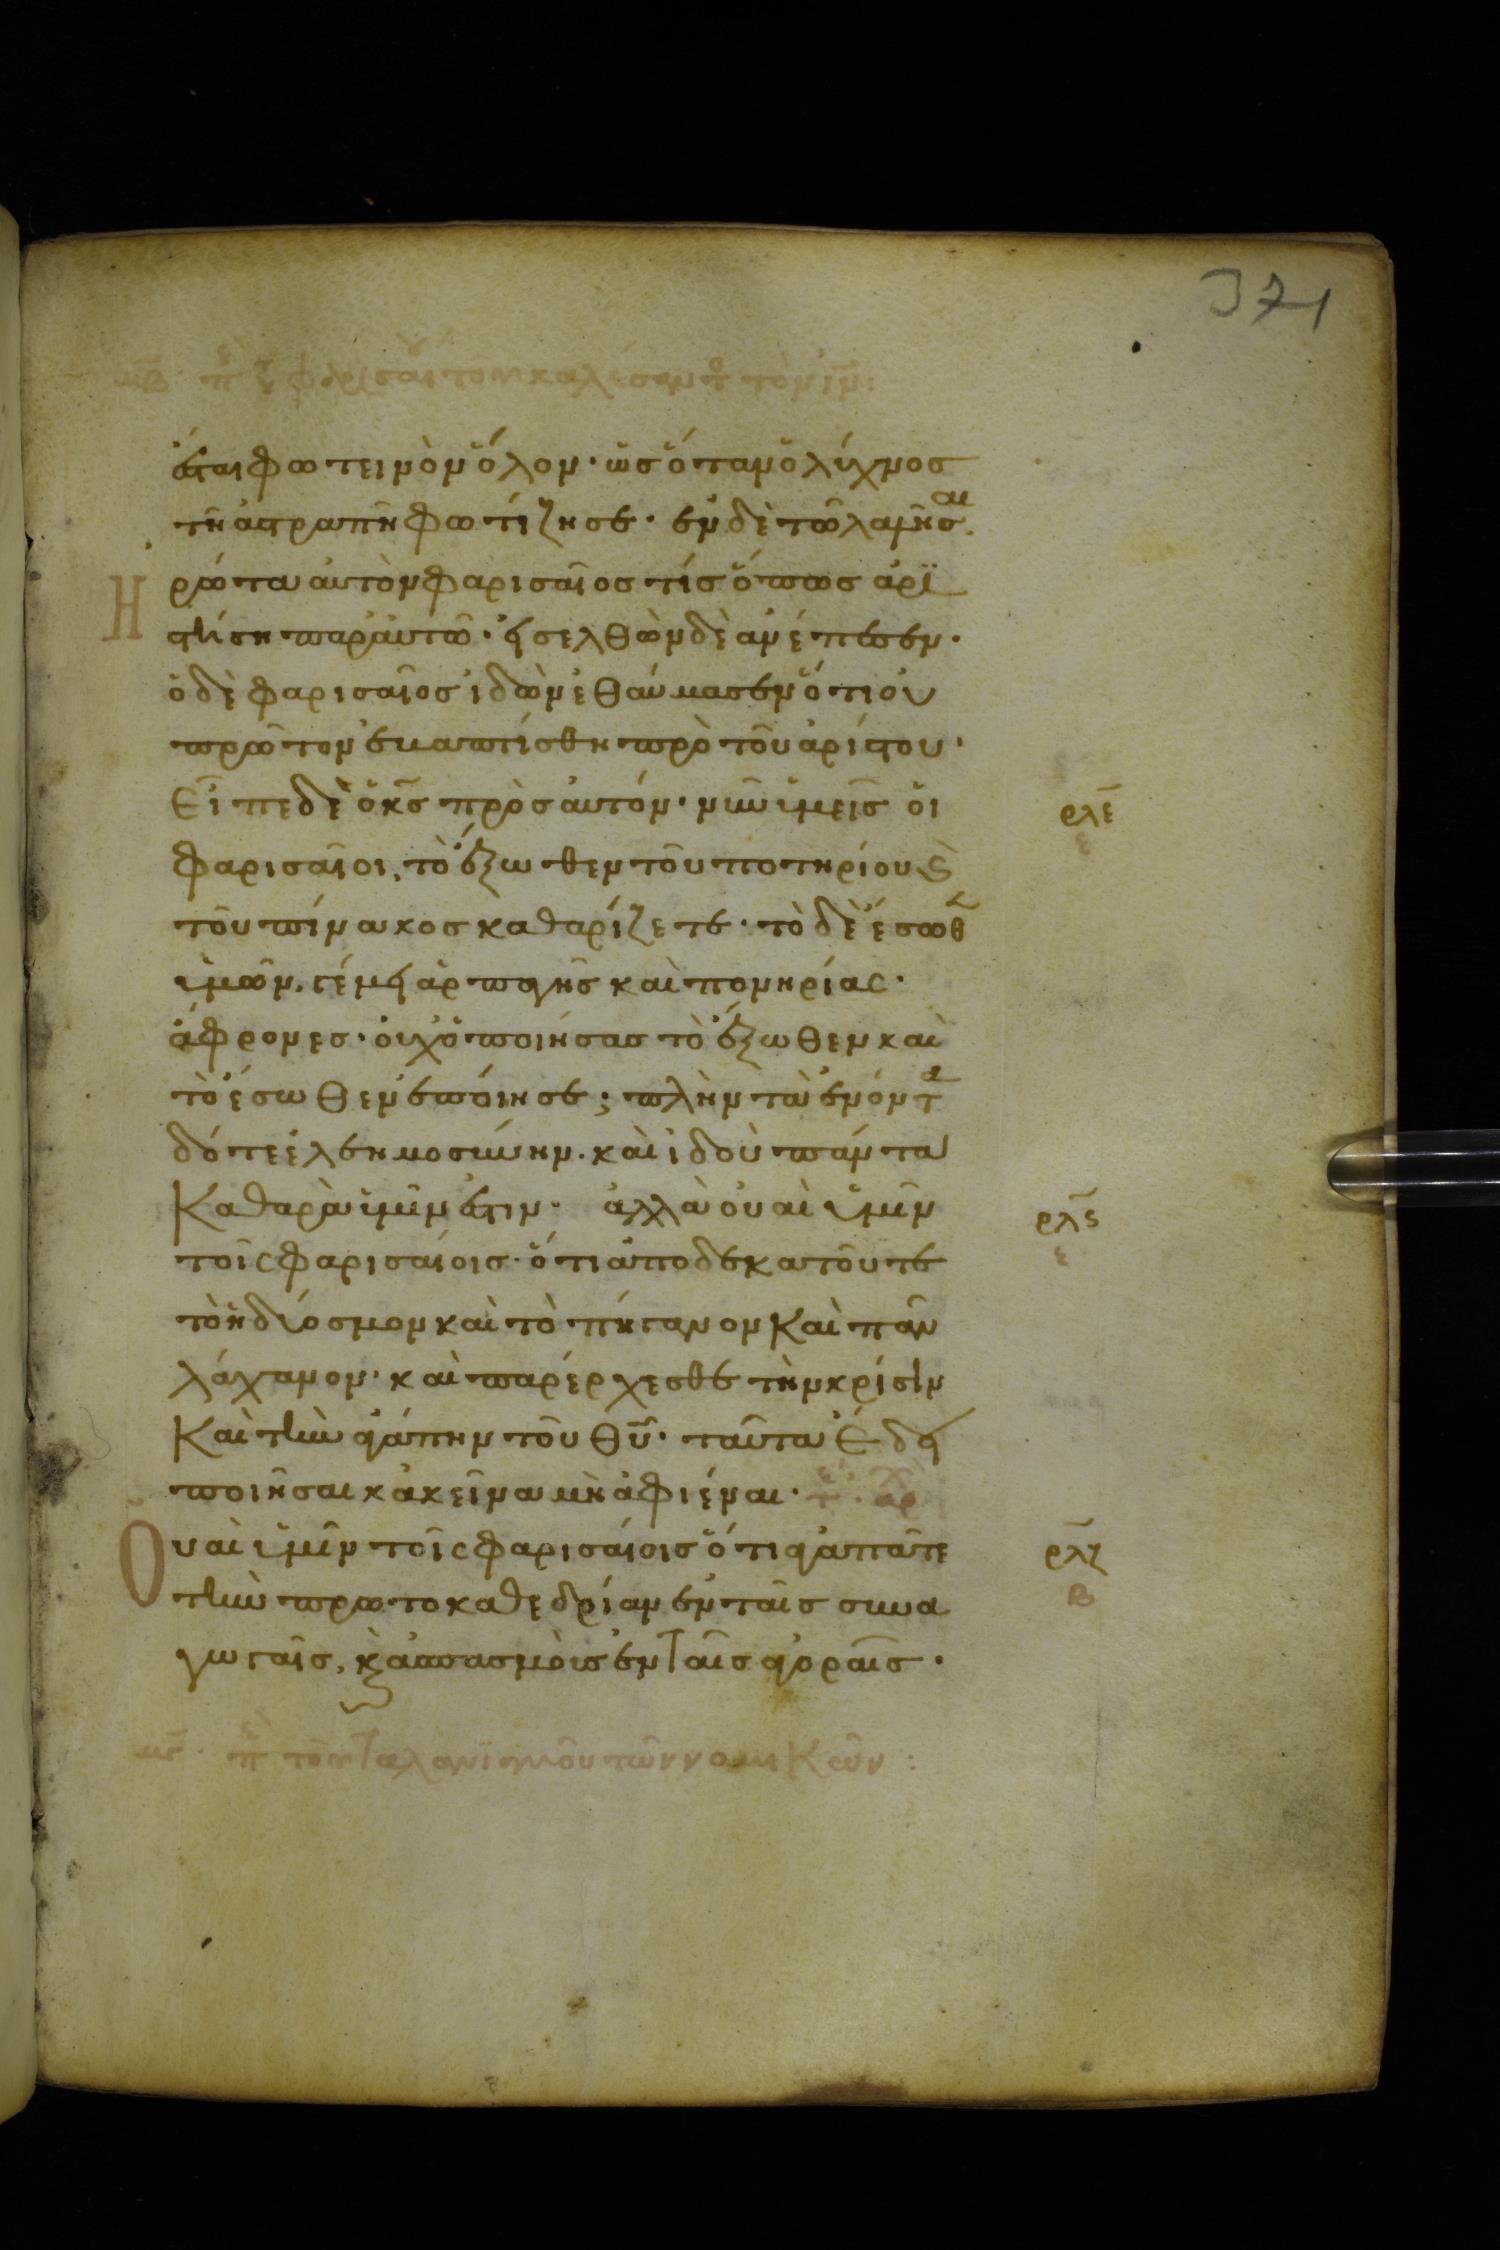 371
μβ. πε τοῦ φαρισαίου τοῦ καλέσαντος τὸν ιν:
ἔσται φωτεινὸν ὅλον· ὡσ ὅταν ὁ λύχνοσ
τῆ ἀστραπῆ φωτίζησε· ἐν δὲ τῶ λαλῆσαι
Ηρώτα αὐτὸν φαρισαῖοσ τίσ ὅπωσ ἀρι
στήση παρ αὐτῶ· εἰσελθὼν δὲ ἀνέπεσεν·
ὁ δὲ φαρισαῖοσ ἰδὼν ἐθαύμασεν ὅτι οὐ
πρῶτον ἐβαπτίσθη πρὸ τοῦ ἀρίστου·
Εἶπε δὲ ὁ κσ πρὸσ αὐτόν· νῦν ὑμεῖσ οἱ
ρλε
ε
φαρισαῖοι, τὸ ἔξωθεν τοῦ ποτηρίου ϗ
τοῦ πίνακοσ καθαρίζετε· τὸ δὲ ἔσωθ
ὑμῶν, γέμει ἁρπαγῆσ καὶ πονηρίασ·
ἄφρονεσ· οὐχ ὁ ποιήσασ τὸ ἔξωθεν καὶ
τὸ ἔσωθεν ἐποίησε; πλὴν τὰ ἐνόντα
δότε ἐλεημοσύνην. καὶ ἰδοὺ πάντα
Καθαρὰ ὑμῖν ἐστιν· ἀλλὰ οὐαὶ ὑμῖν
ρλς
ε
τοῖσ φαρισαίοισ· ὅτι ἀποδεκατοῦτε
τὸ ἡδύοσμον καὶ τὸ πήγανον Καὶ πᾶν
λάχανον· καὶ παρέρχεσθε τὴν κρίσιν
Καὶ τὴν ἀγάπην τοῦ θυ· ταῦτα ἔδει
ποιῆσαι κἀκεῖνα μὴ ἀφιέναι·
Οὐαὶ ὑμῖν τοῖσ φαρισαίοισ ὅτι ἀγαπᾶτε
ρλζ
β
τὴν πρωτοκαθεδρίαν ἐν ταῖσ συνα
γωγαῖσ, ϗ ἀσπασμοὺσ ἐν ταῖσ ἀγοραῖσ·
μγ. πε τοῦ ταλανισμοῦ τῶν νομικῶν: